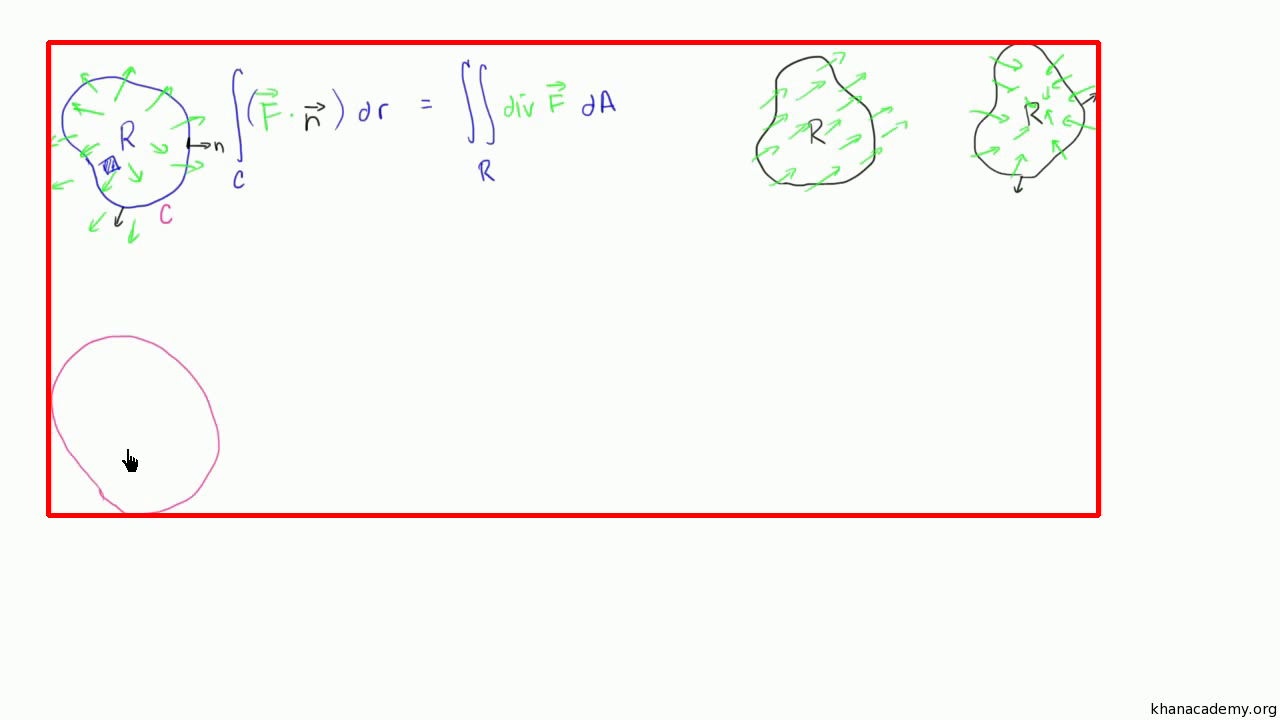 R
n
C
∫_C (F⃗ · n⃗) dr = ∬_R div F⃗ dA
R
R
khanacademy.org